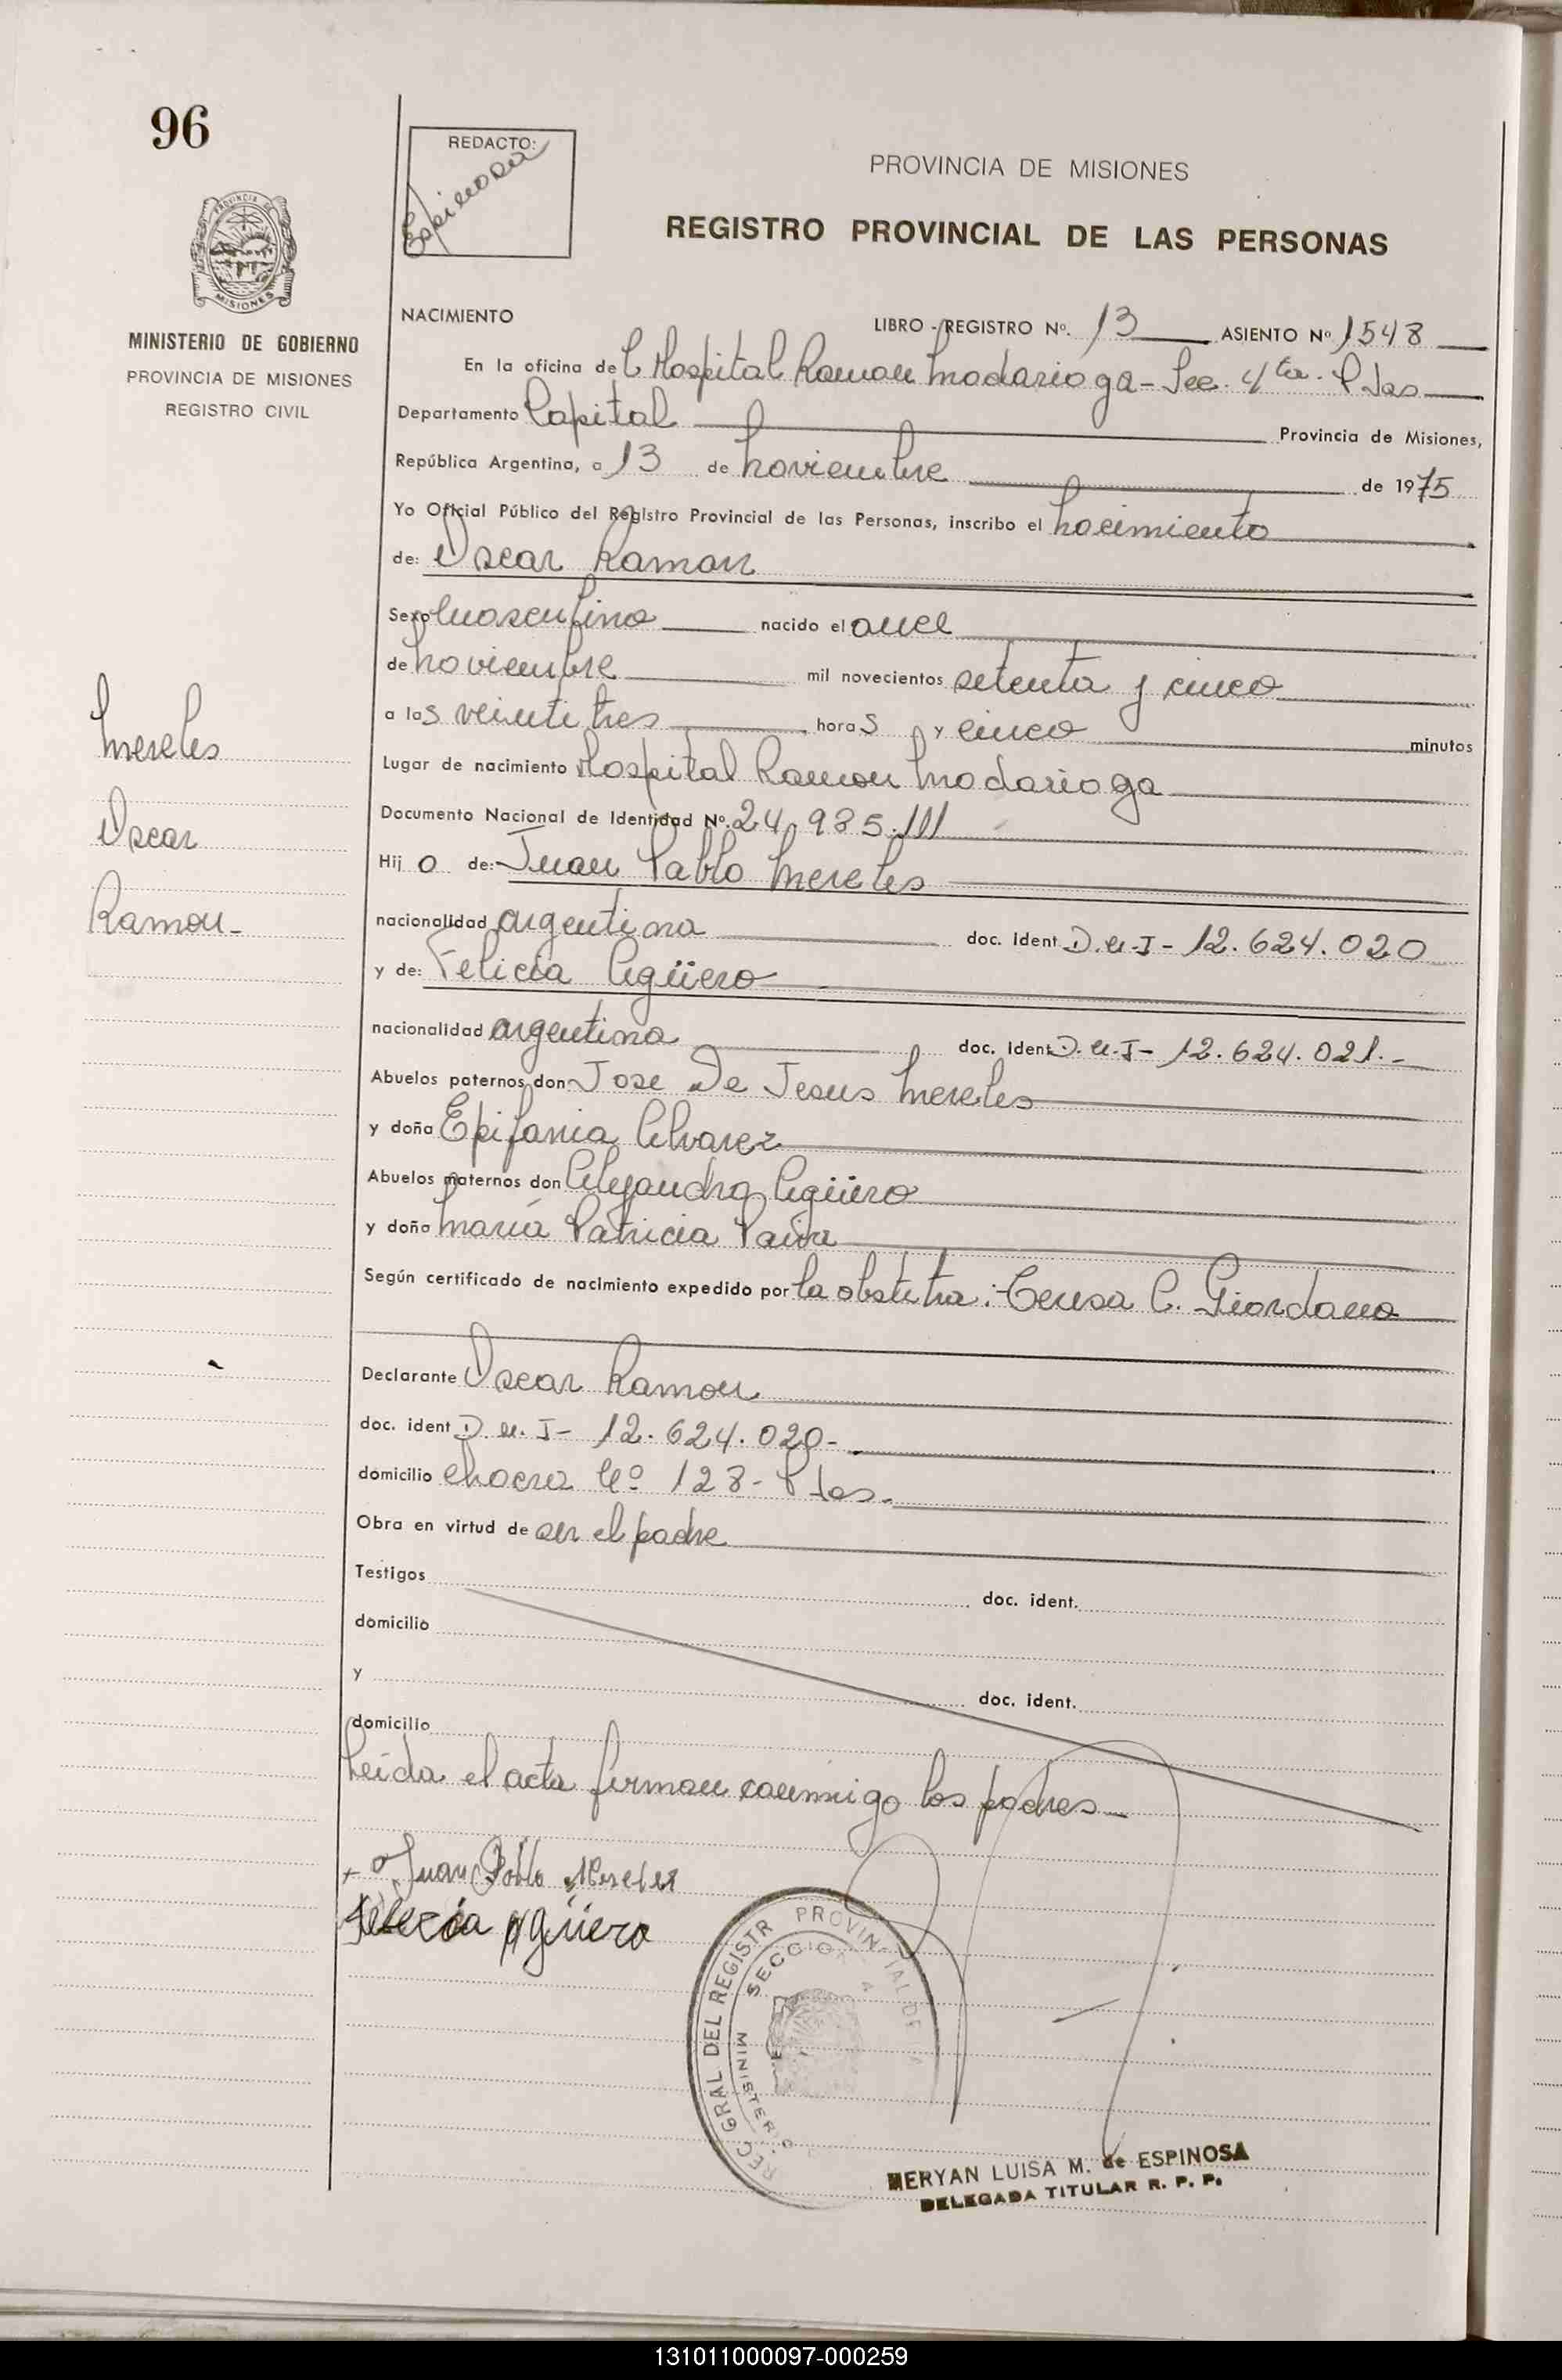 96
REDACTO:
Espinosa
PROVINCIA DE MISIONES
REGISTRO PROVINCIAL DE LAS PERSONAS
PROVINCIA DE
MISIONES
MINISTERIO DE GOBIERNO
PROVINCIA DE MISIONES
REGISTRO CIVIL
NACIMIENTO
LIBRO - REGISTRO Nº. 13 ASIENTO Nº 1548
En la oficina del Hospital Ramon Madariaga - Sec. 4ta. Pdas
Departamento Capital Provincia de Misiones,
República Argentina, a 13 de noviembre de 1975
Yo Oficial Público del Registro Provincial de las Personas, inscribo el nacimiento
de: Oscar Ramon
Sexo masculino nacido el once
de noviembre mil novecientos setenta y cinco
a las veinti tres horas y cinco minutos
Lugar de nacimiento Hospital Ramon Madariaga
Documento Nacional de Identidad Nº. 24.985.111
Hijo de: Juan Pablo Mereles
nacionalidad argentina doc. ident D.N.I - 12.624.020
y de: Felicia Agüero
nacionalidad argentina doc. ident D.N.I - 12.624.021.-
Abuelos paternos don Jose De Jesus Mereles
y doña Epifania Alvarez
Abuelos maternos don Alejandro Agüero
y doña María Patricia
Según certificado de nacimiento expedido por la obstetra: Teresa C. Giordano
Declarante Oscar Ramon
doc. ident D.N.I - 12.624.020-.
domicilio chacra Nº 128 - Pdas.
Obra en virtud de ser el padre
Testigos doc. ident.
domicilio
y doc. ident.
domicilio
Leida el acta firman conmigo los padres
Mereles
Oscar
Ramon -
Juan Pablo Mereles
Felicia Agüero
REC GRAL DEL REGISTR PROVINCIAL DE LA
SECCION 4
MINISTERIO
MERYAN LUISA M. de ESPINOSA
DELEGADA TITULAR R. P. P.
131011000097-000259